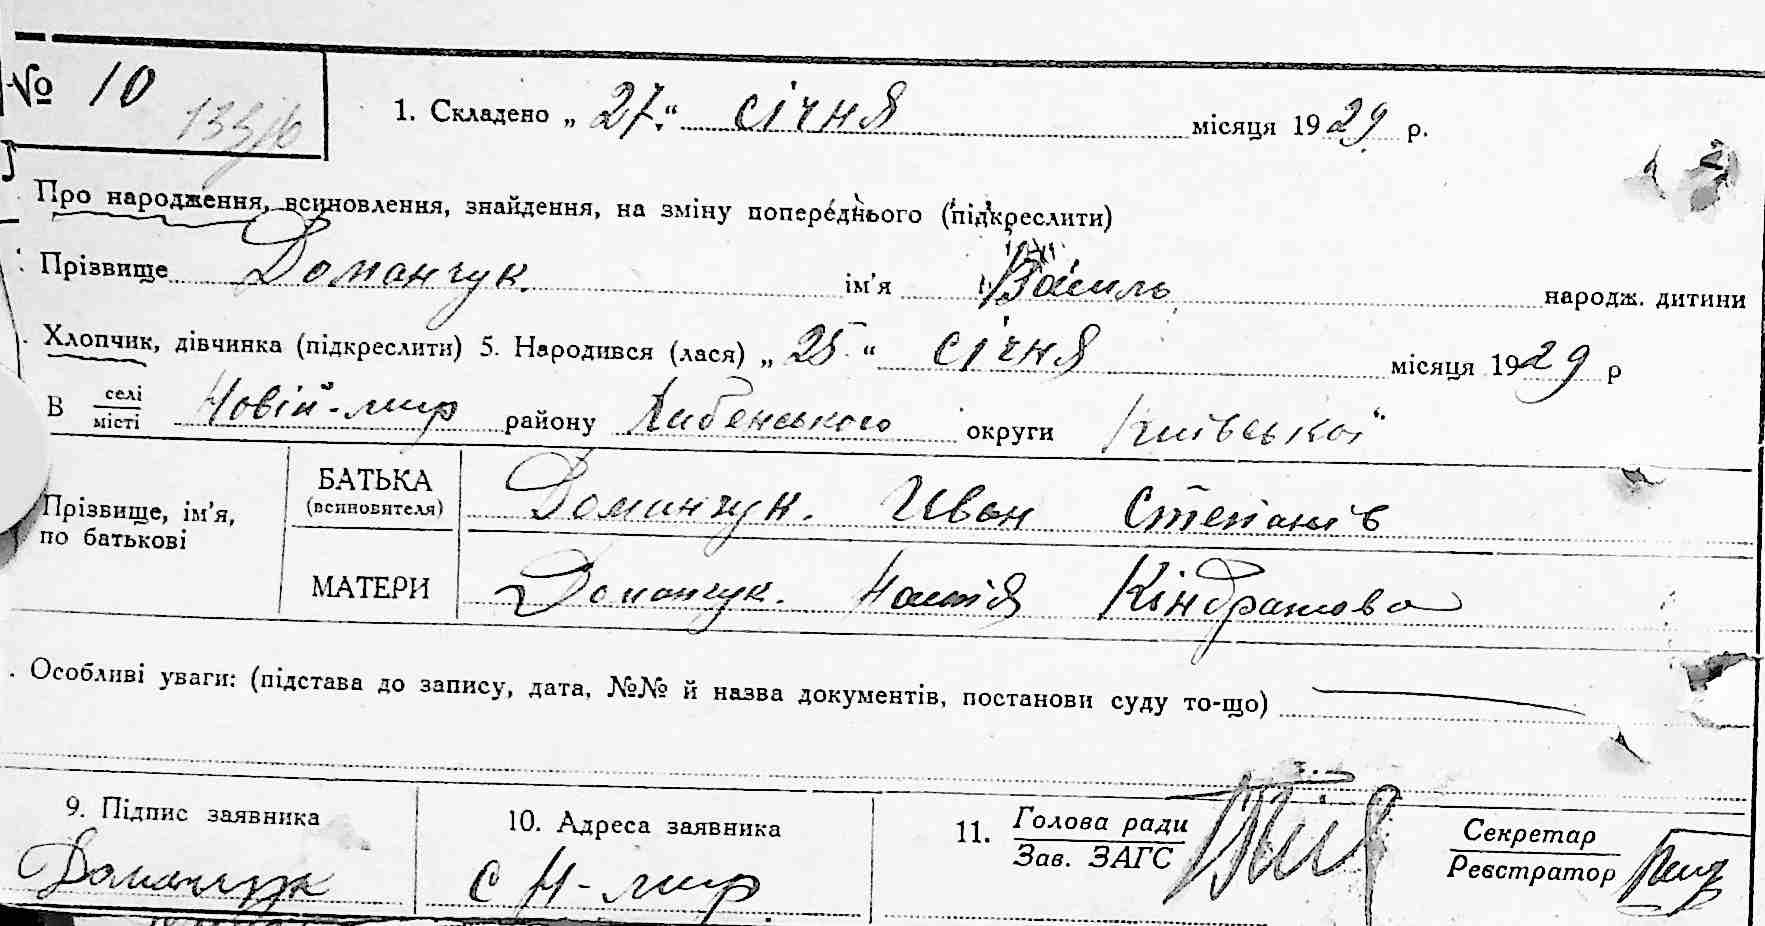 № 10
1. Складено „27.“ січня місяця 1929 р.
Про народження, всиновлення, знайдення, на зміну попереднього (підкреслити)
Прізвище Доманчук. ім'я Василь народж. дитини
Хлопчик, дівчинка (підкреслити) 5. Народився (лася) „25“ січня місяця 1929 р
В селі
місті Новій-мир району Хабенського округи Київської
Прізвище, ім'я,
по батькові
БАТЬКА
(всиновителя)
Доминчук. Иван Степанів
МАТЕРИ Доманчук. Настія Кіндратова
Особливі уваги: (підстава до запису, дата, №№ й назва документів, постанови суду то-що)
9. Підпис заявника
Доманчук
10. Адреса заявника
с Н-мир
11. Голова ради
Зав. ЗАГС
Секретар
Реєстратор